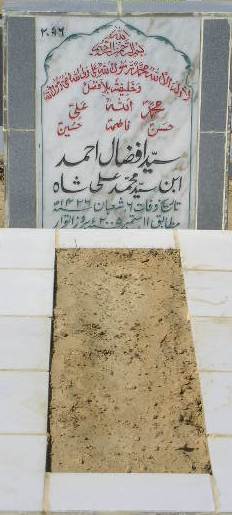 ۲۰۹۶
بسم اللہ الرحمن الرحیم
لا الہ الا اللہ محمد رسول اللہ علی ولی اللہ وصی رسول اللہ
وخلیفتہ بلا فصل
محمد اللہ علی
حسن فاطمہ حسین
سید افضال احمد
ابن سید محمد علی شاہ
تاریخ وفات ۶ شعبان ۱۴۲۶ھ
مطابق ۱۱ ستمبر ۲۰۰۵ء بروز اتوار